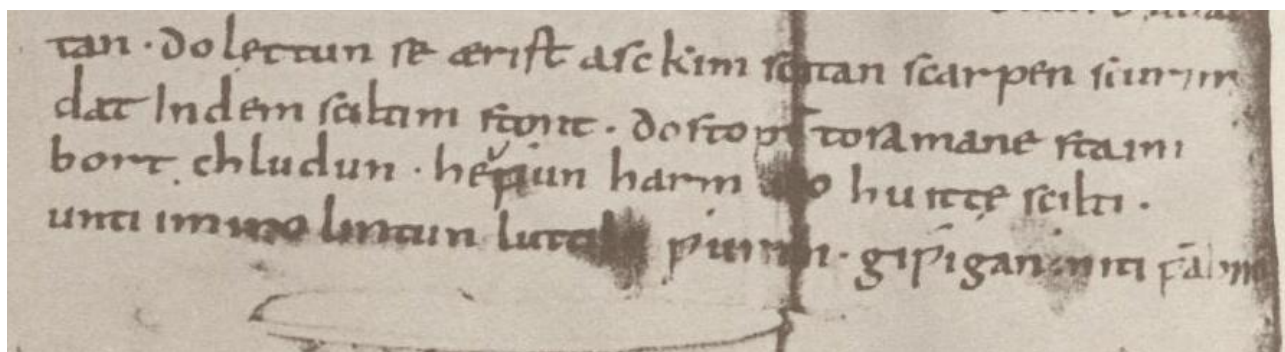 tan · do lęttun se ærist asckim scritan scarpen scurim
dat In dem sciltim stont · do stoptũ tosamane staim
bort chludun · heƿun harmlicco huittę scilti ·
unti im iro lintun luttilo ƿurtun · giƿigan miti ƿabnũ